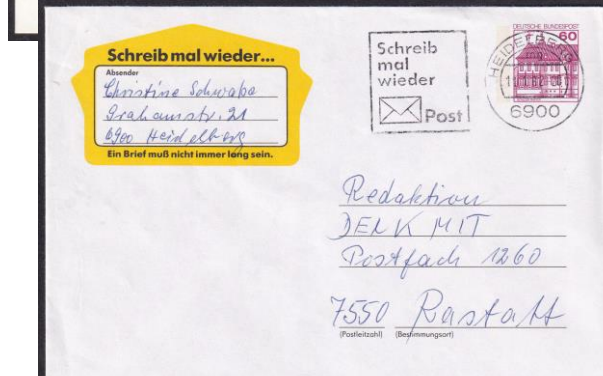 Schreib mal wieder...
Absender
Christine Schwabe
Grahamstr. 21
6900 Heidelberg
Ein Brief muß nicht immer lang sein.
Schreib
mal
wieder
Post
DEUTSCHE BUNDESPOST
60
HEIDELBERG
6900
Redaktion
DENK MIT
Postfach 1260
7550 Rastatt
(Postleitzahl) (Bestimmungsort)